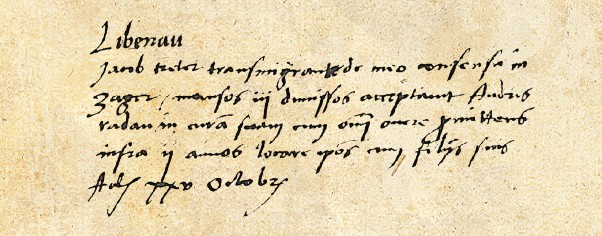 Libenau
Jacob treter transmigrante de meo consensu in
Zager, mansos iij dimissos acceptavit Andris
radau in curam suam cum omni onere promittens
infra ij annos locare ipsos cum filiis suis
Act xxv Octobr